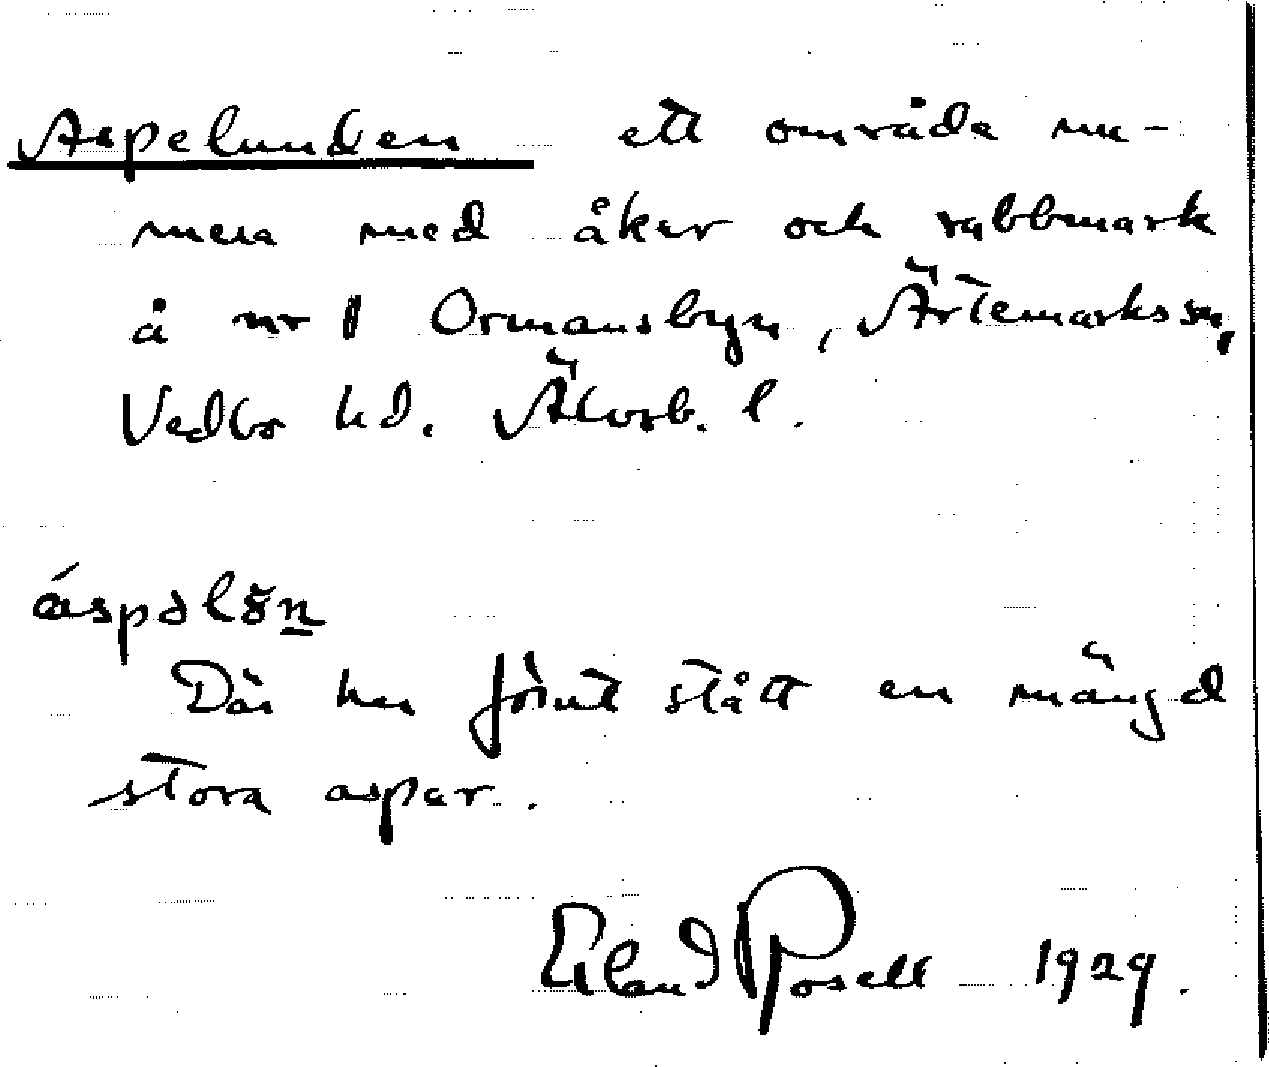 Aspelunden ett område nu-
mera med åker och rabbmark
å nr 1 Ormansbyn, Ärtemarks sn,
Vedbo hd. Älvsb. l.
áspəlön
Där har förut stått en mängd
stora aspar.
Erland Rosell 1929.